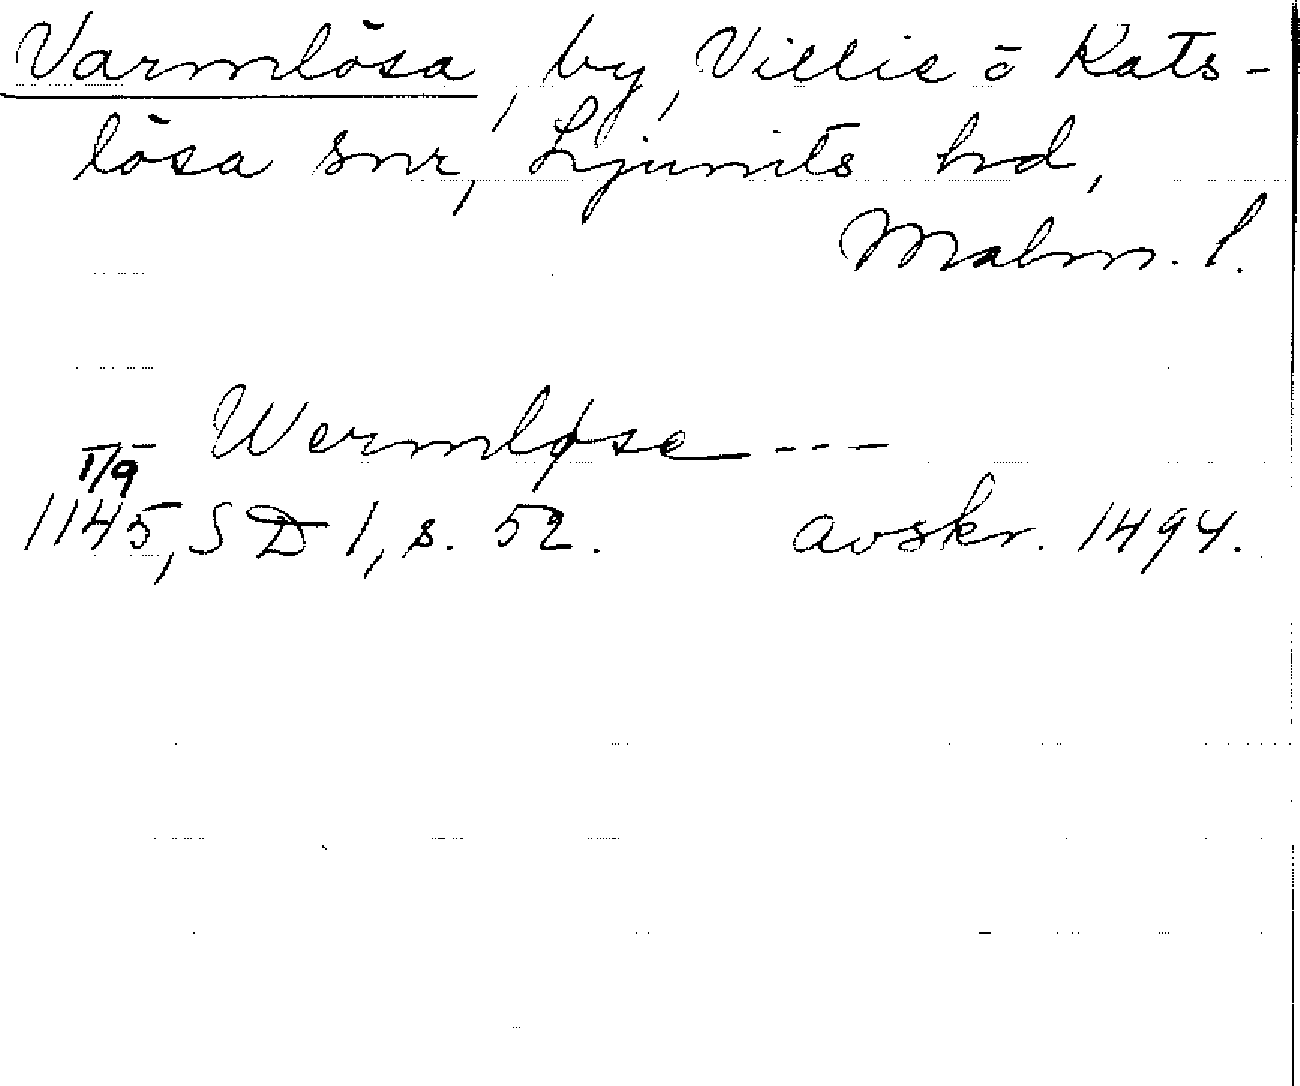 Varmlösa, by, Villie ö Kats-
lösa snr, Ljunits hd,
Malm. l.
Wermløse---
1/9
1145, SD 1, s. 52. avskr. 1494.